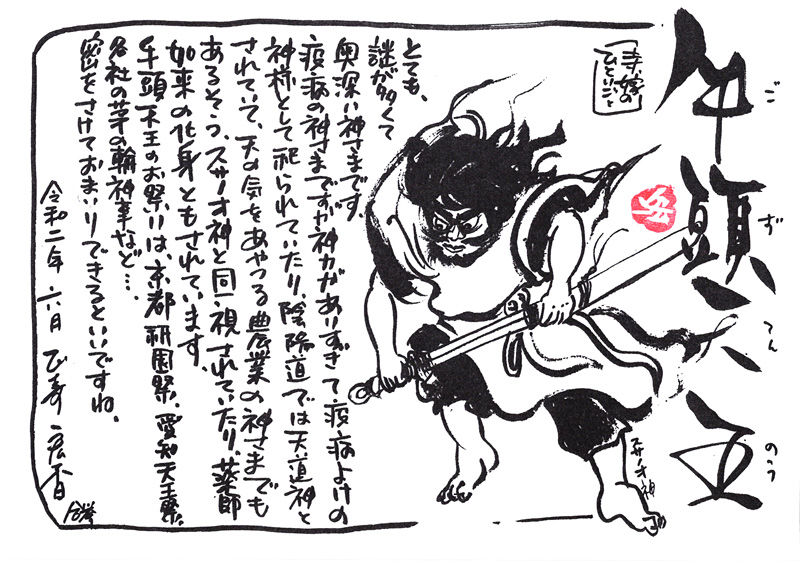 牛頭天王
ごずてんのう
「寺嫁の
ひといごと
とても、
謎が多くて
奥深い神さまです。
疫病の神さまですが神力がありすぎて、疫病よけの
神様として祀られていたり、陰陽道では天道神と
されていて、天の気をあやつる農業の神さまでも
あるそう。スサノオ神と同一視されていたり、薬師
如来の化身ともされています。
牛頭天王のお祭りは、京都祇園祭、愛知天王祭、
各社の茅の輪神事など…。
密をさけておまいりできるといいですね。
令和二年 六月
合掌
スサノオ神